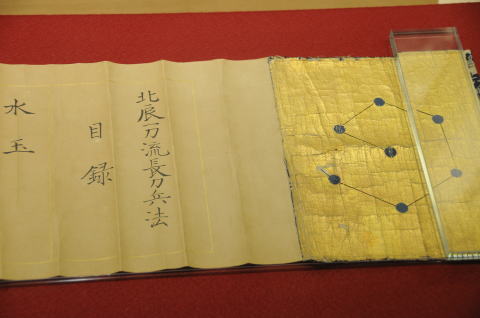 北辰一刀流長刀兵法
目録
水玉